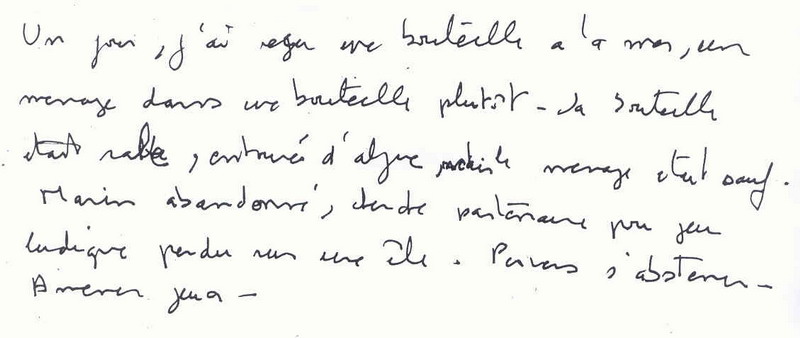 Un jour, j'ai reçu une bouteille a la mer, un
message dans une bouteille plutôt - La bouteille
était sale, entourée d'algue mais le message était sauf.
Marin abandonné, cherche partenaire pour jeu
ludique perdu sur une île. Pervers s'abstenir -
Amener jeux -